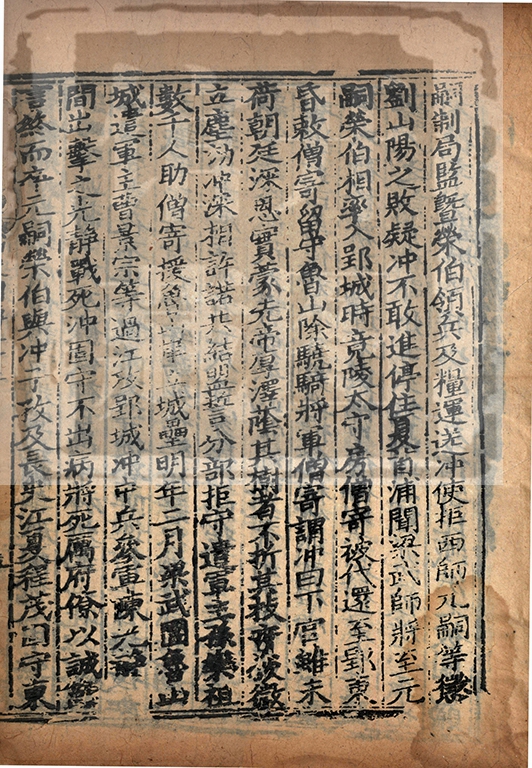 嗣制局監暨榮伯領兵及糧運送冲使拒西師元嗣等懲
劉山陽之敗疑冲不敢進停住夏首浦聞梁武師將至元
嗣榮伯相率入郢城時竟陵太守房僧寄被代還至郢東
昏敕僧寄留守魯山除驍騎將軍僧寄謂冲曰下官雖未
荷朝廷深恩實蒙先帝厚澤蔭其樹者不折其枝實欲微
立塵効冲深相許諾共結盟誓分部拒守遣軍主孫樂祖
數千人助僧寄援魯山岸立城壘明年二月梁武圍魯山
城遣軍主曹景宗等過江攻郢城冲中兵參軍陳光
間出擊之光靜戰死冲固守不出病將死厲府僚以誠節
言終而卒元嗣榮伯與冲子孜及長史江夏程茂固守東